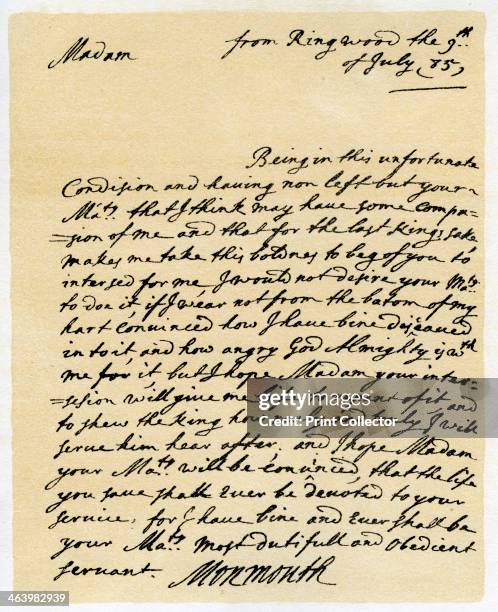 from Ringwood the 9th
Madam
of July (85)
Being in this unfortunate
Condision and having non left but your
Ma.ty that I think may have some Compa=
=sion of me and that for the last Kings sake
makes me take this boldnes to beg of you to
intersed for me I would not desire your Ma.ty
to doe it if I wear not from the botom of my
hart Convinced how I have bine deseaved
in to it and how angry God Almighty is wth
me for it but I hope Madam your inter=
=session will give me life to repent of it and
to shew the King how I will
serve him hear after. and I hope Madam
your Ma.ty will be Convinced, that the life
you save shall Ever be devoted to your
service, for I have bine and Ever shall be
your Ma.ty most dutifull and obedient
servant. Monmouth
gettyimages
Credit: Print Collector
463982939